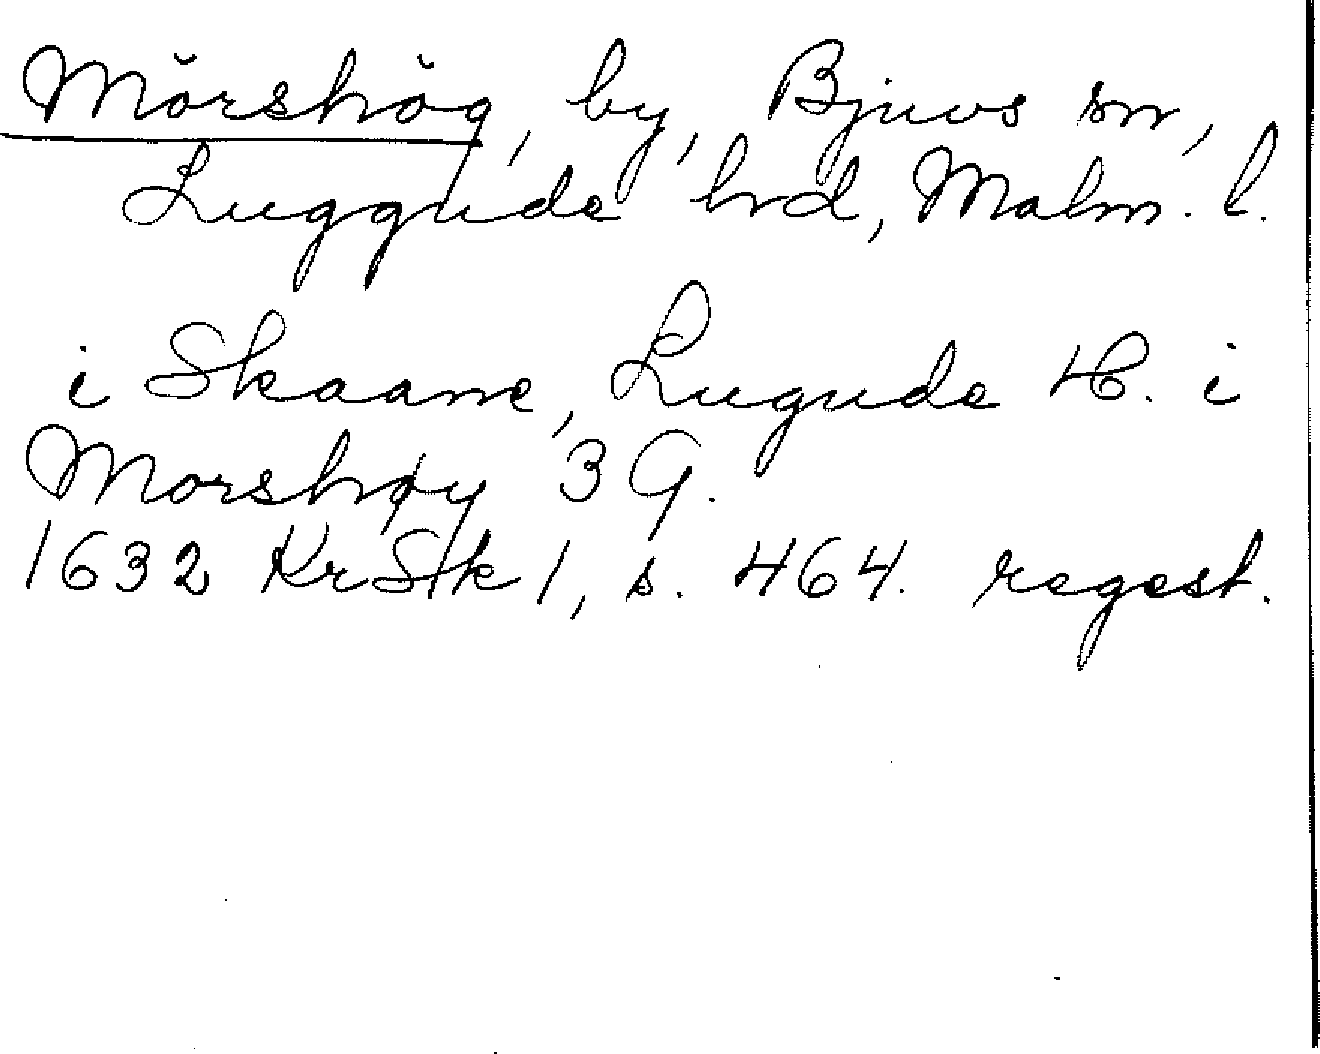 Mörshög, by, Bjuvs sn,
Luggude hrd, Malm. l.
i Skaane, Lugude H. i
Morshøy 3 G.
1632 KrSk 1, s. 464. regest.